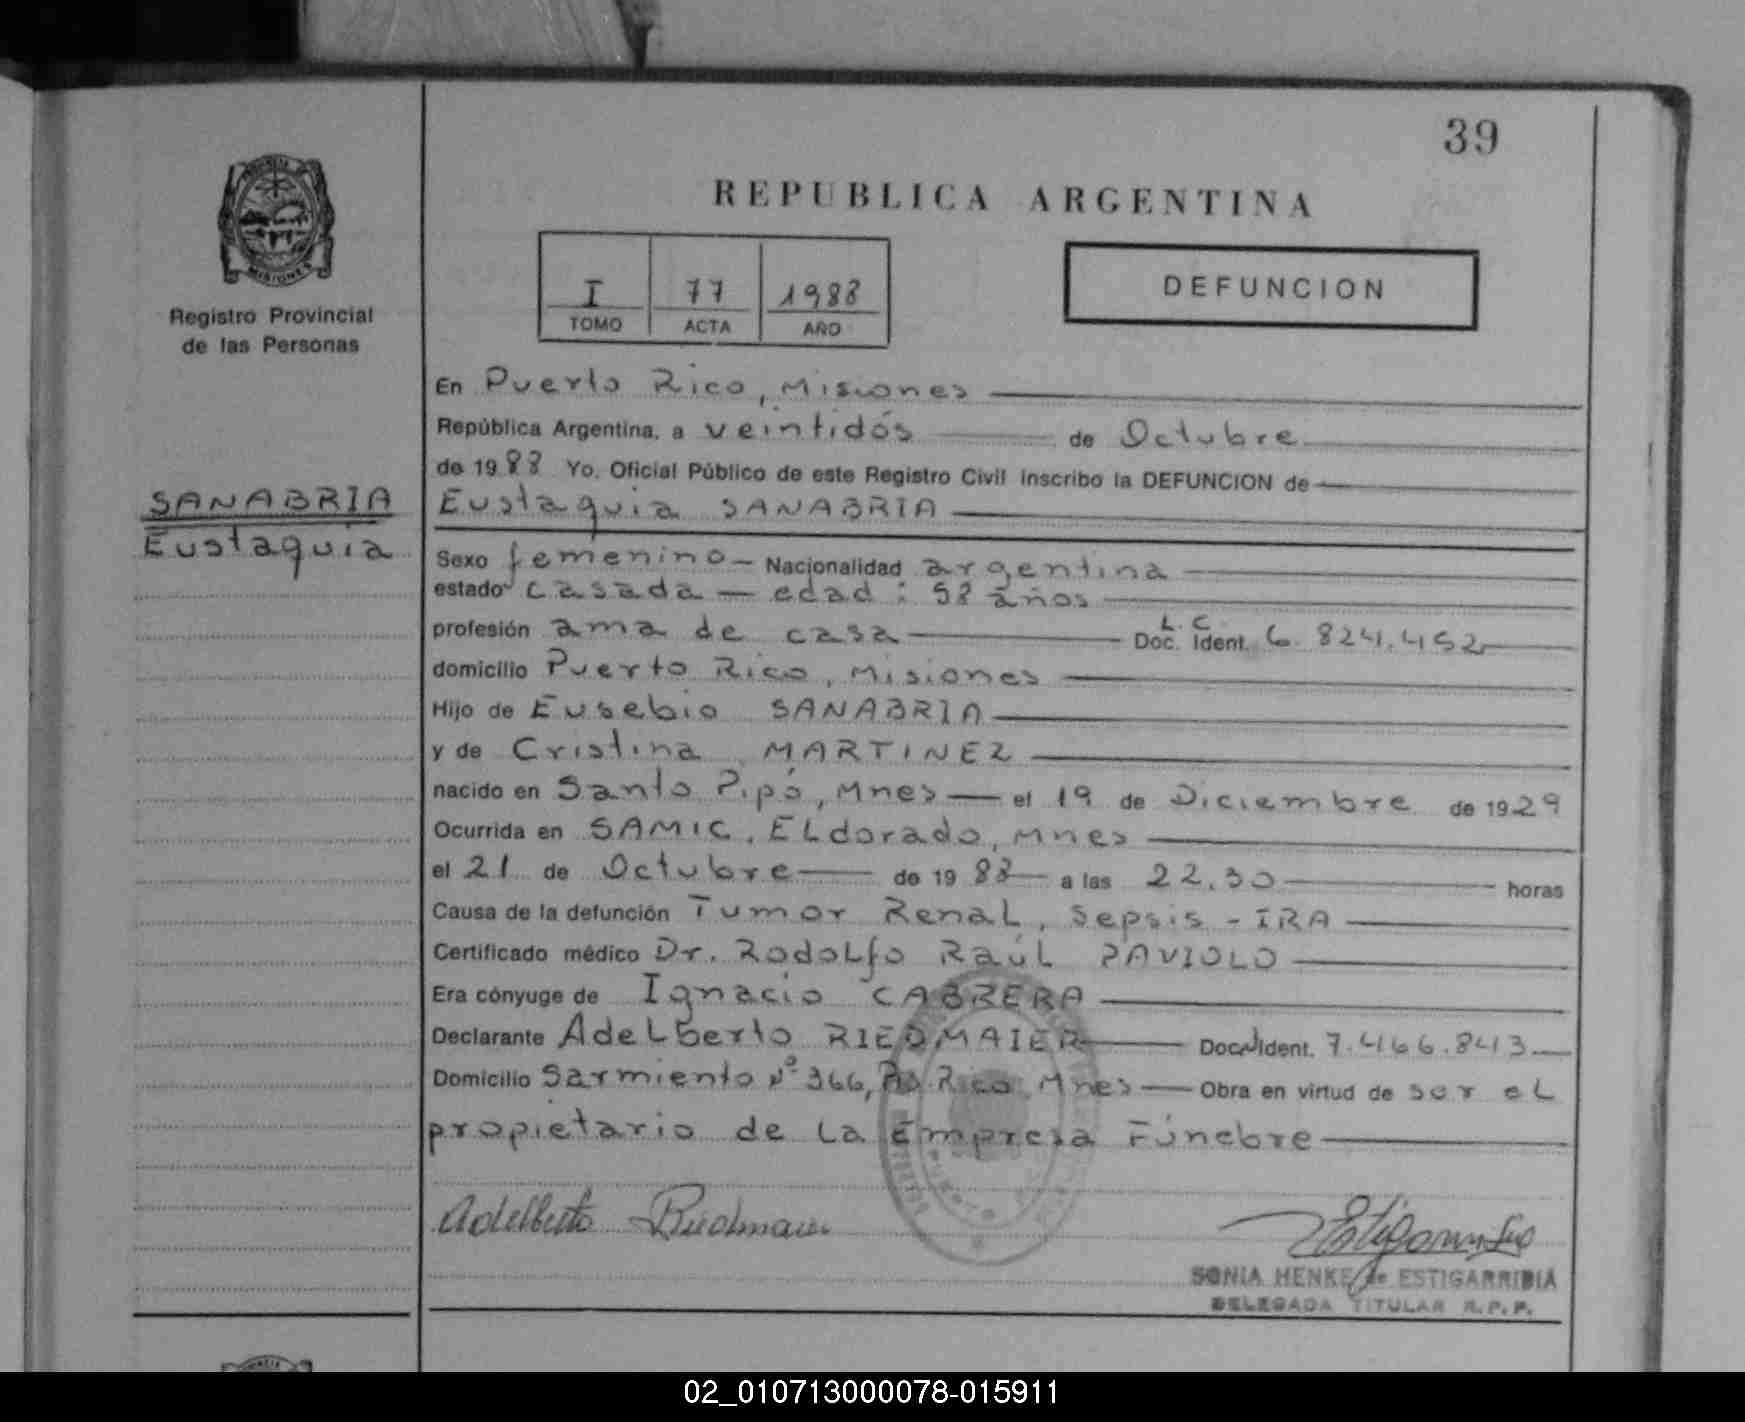 39
REPUBLICA ARGENTINA
I 77 1988
TOMO ACTA AÑO
DEFUNCION
MISIONES
Registro Provincial
de las Personas
SANABRIA
Eustaquia
En Puerto Rico, Misiones
República Argentina, a veintidós de Octubre
de 1988 Yo, Oficial Público de este Registro Civil inscribo la DEFUNCION de
Eustaquia SANABRIA
Sexo femenino - Nacionalidad argentina
estado casada - edad: 58 años
profesión ama de casa L.C. Doc. Ident. 6.824.452
domicilio Puerto Rico, Misiones
Hijo de Eusebio SANABRIA
y de Cristina MARTINEZ
nacido en Santo Pipó, Mnes - el 19 de Diciembre de 1929
Ocurrida en SAMIC, ELdorado, Mnes
el 21 de Octubre de 1988 a las 22.30 horas
Causa de la defunción Tumor Renal, Sepsis - IRA
Certificado médico Dr. Rodolfo Raúl PAVIOLO
Era cónyuge de Ignacio CABRERA
Declarante Adelberto RIEDMAIER Doc. Ident. 7.466.843
Domicilio Sarmiento Nº 366, Pto. Rico, Mnes - Obra en virtud de ser el
propietario de la Empresa Fúnebre
Adelberto Riedmaier
SONIA HENKE de ESTIGARRIBIA
DELEGADA TITULAR R.P.P.
02_010713000078-015911